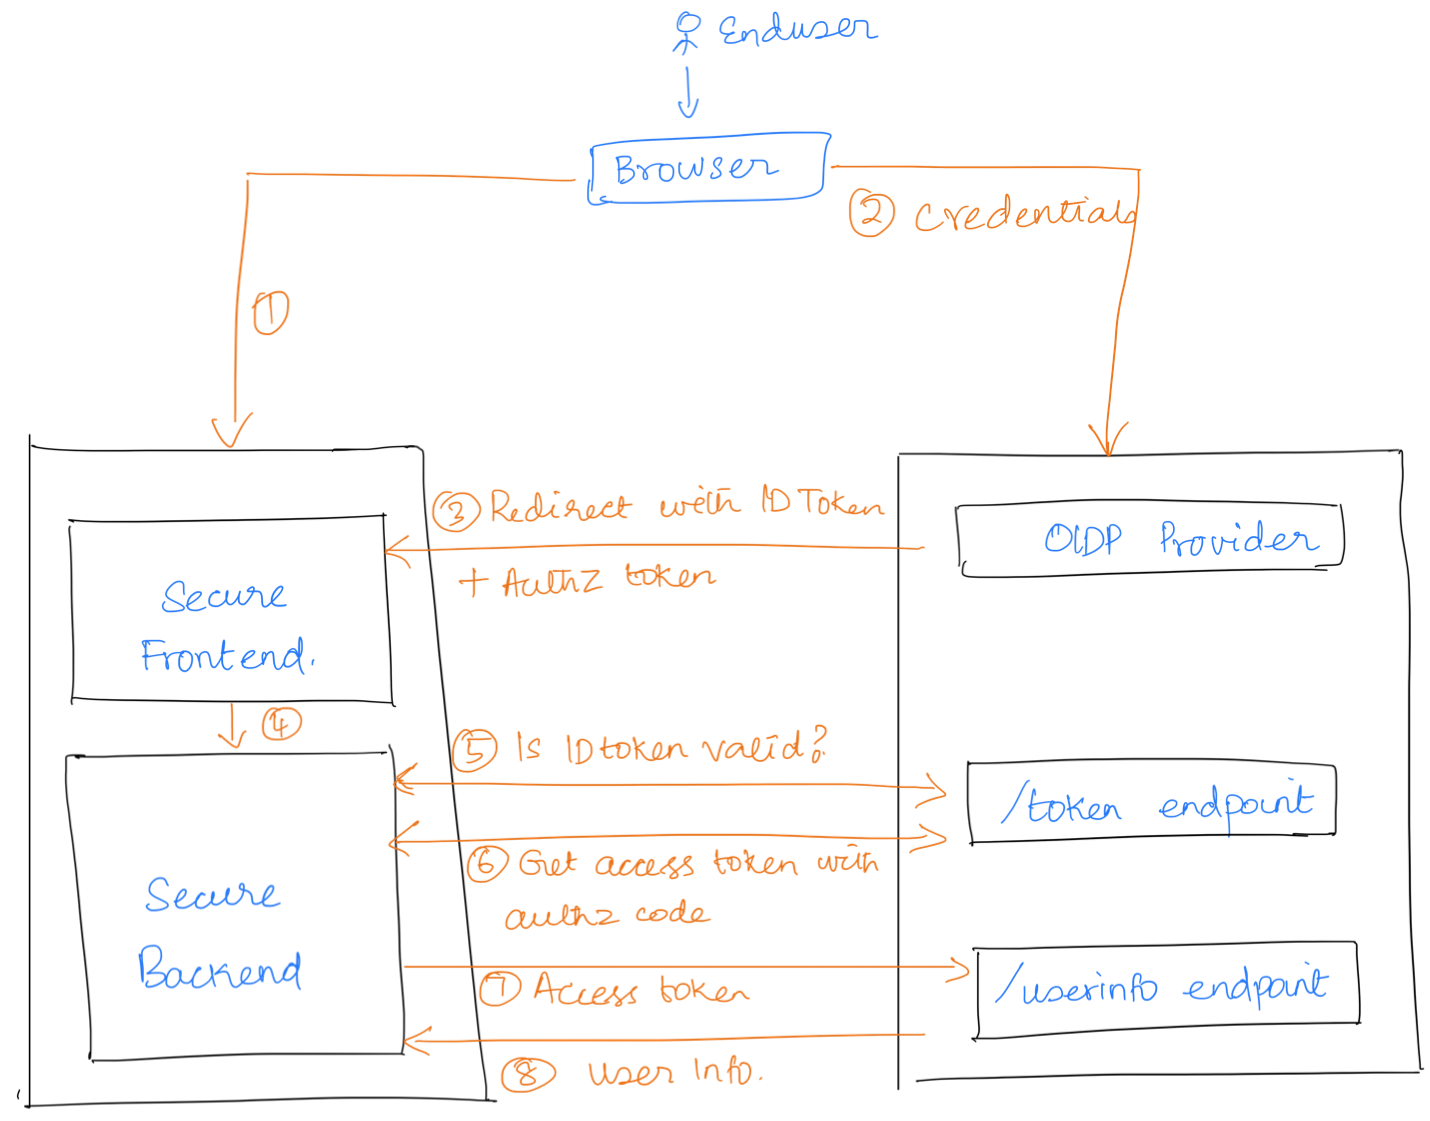 Enduser
Browser
② Credentials
①
③ Redirect with ID Token
+ Authz token
OIDP Provider
Secure
Frontend.
④
⑤ Is ID token valid?
/token endpoint
⑥ Get access token with
authz code
Secure
Backend
⑦ Access token
/userinfo endpoint
⑧ User Info.